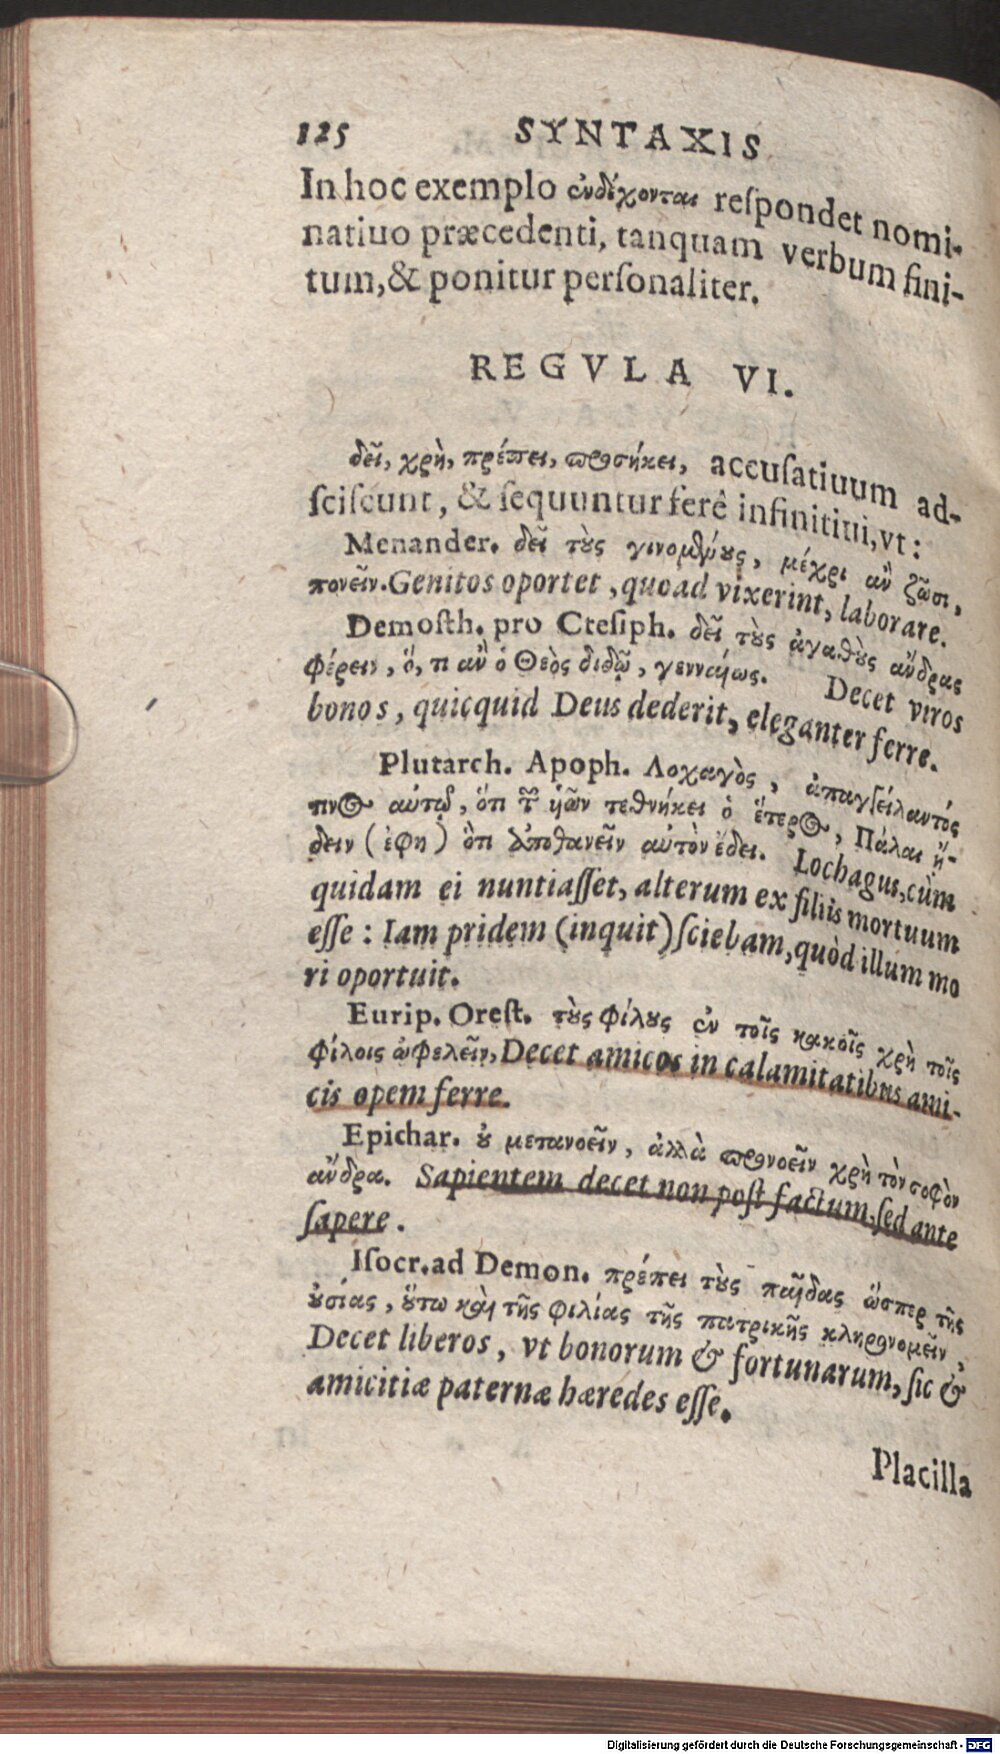 125 SYNTAXIS
In hoc exemplo ἐνδέχονται reſpondet nomi-
natiuo præcedenti, tanquam verbum fini-
tum, & ponitur perſonaliter.
REGVLA VI.
δεῖ, χρὴ, πρέπει, προσήκει, accuſatiuum ad-
ſciſcunt, & ſequuntur ferê infinitiui, vt:
Menander. δεῖ τοὺς γινομένους, μέχρι ἂν ζῶσι,
πονεῖν. Genitos oportet, quoad vixerint, laborare.
Demoſth. pro Cteſiph. δεῖ τοὺς ἀγαθοὺς ἄνδρας
φέρειν, ὅ, τι ἂν ὁ Θεὸς διδῷ, γενναίως. Decet viros
bonos, quicquid Deus dederit, eleganter ferre.
Plutarch. Apoph. Λοχαγὸς, ἀπαγγείλαντός
τινος αὐτῷ, ὅτι τῶν ὑῶν τεθνήκει ὁ ἕτερος, Πάλαι ἤ-
δειν (ἐφη) ὅτι ἀποθανεῖν αὐτὸν ἔδει. Lochagus, cùm
quidam ei nuntiaſſet, alterum ex filiis mortuum
eſſe: Iam pridem (inquit) ſciebam, quòd illum mo
ri oportuit.
Eurip. Oreſt. τοὺς φίλους ἐν τοῖς κακοῖς χρὴ τοῖς
φίλοις ὠφελεῖν, Decet amicos in calamitatibus ami-
cis opem ferre.
Epichar. οὐ μετανοεῖν, ἀλλὰ προνοεῖν χρὴ τὸν σοφὸν
ἄνδρα. Sapientem decet non poſt factum, ſed ante
ſapere.
Iſocr. ad Demon. πρέπει τοὺς παῖδας ὥσπερ τῆς
οὐσίας, οὕτω καὶ τῆς φιλίας τῆς πατρικῆς κληρονομεῖν,
Decet liberos, vt bonorum & fortunarum, ſic &
amicitiæ paternæ hæredes eſſe.
Placilla
Digitalisierung gefördert durch die Deutsche Forschungsgemeinschaft - DFG